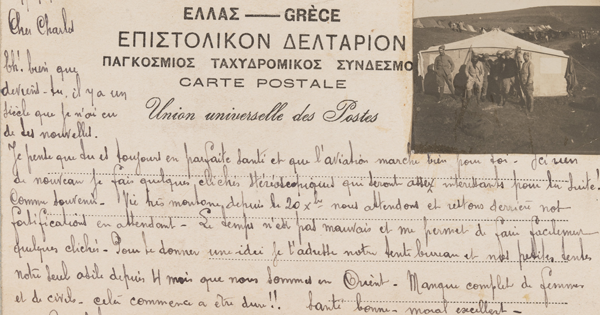 ΕΛΛΑΣ — GRÈCE
ΕΠΙΣΤΟΛΙΚΟΝ ΔΕΛΤΑΡΙΟΝ
ΠΑΓΚΟΣΜΙΟΣ ΤΑΧΥΔΡΟΜΙΚΟΣ ΣΥΝΔΕΣΜΟ
CARTE POSTALE
Union universelle des Postes
Cher Charles
Eh! bien que
devient-tu. il y a un
siècle que je n'ai eu
de tes nouvelles.
Je pense que tu es toujours en parfaite santé et que l'aviation marche bien pour toi - Ici rien
de nouveau je fais quelques clichés stéréoscopiques qui seront assez intéressants pour la suite!
Comme souvenir - Vie très monotone, depuis le 20 Xbre nous attendons et restons derrière nos
fortifications en attendant - Le temps n'est pas mauvais et me permet de faire facilement
quelques clichés - Pour te donner une idée je t'adresse notre tente bureau et nos petites tentes
notre seul asile depuis 4 mois que nous sommes en Orient - Manque complet de femmes
et de civils - celà commence a être dur!! Santé bonne - moral excellent -